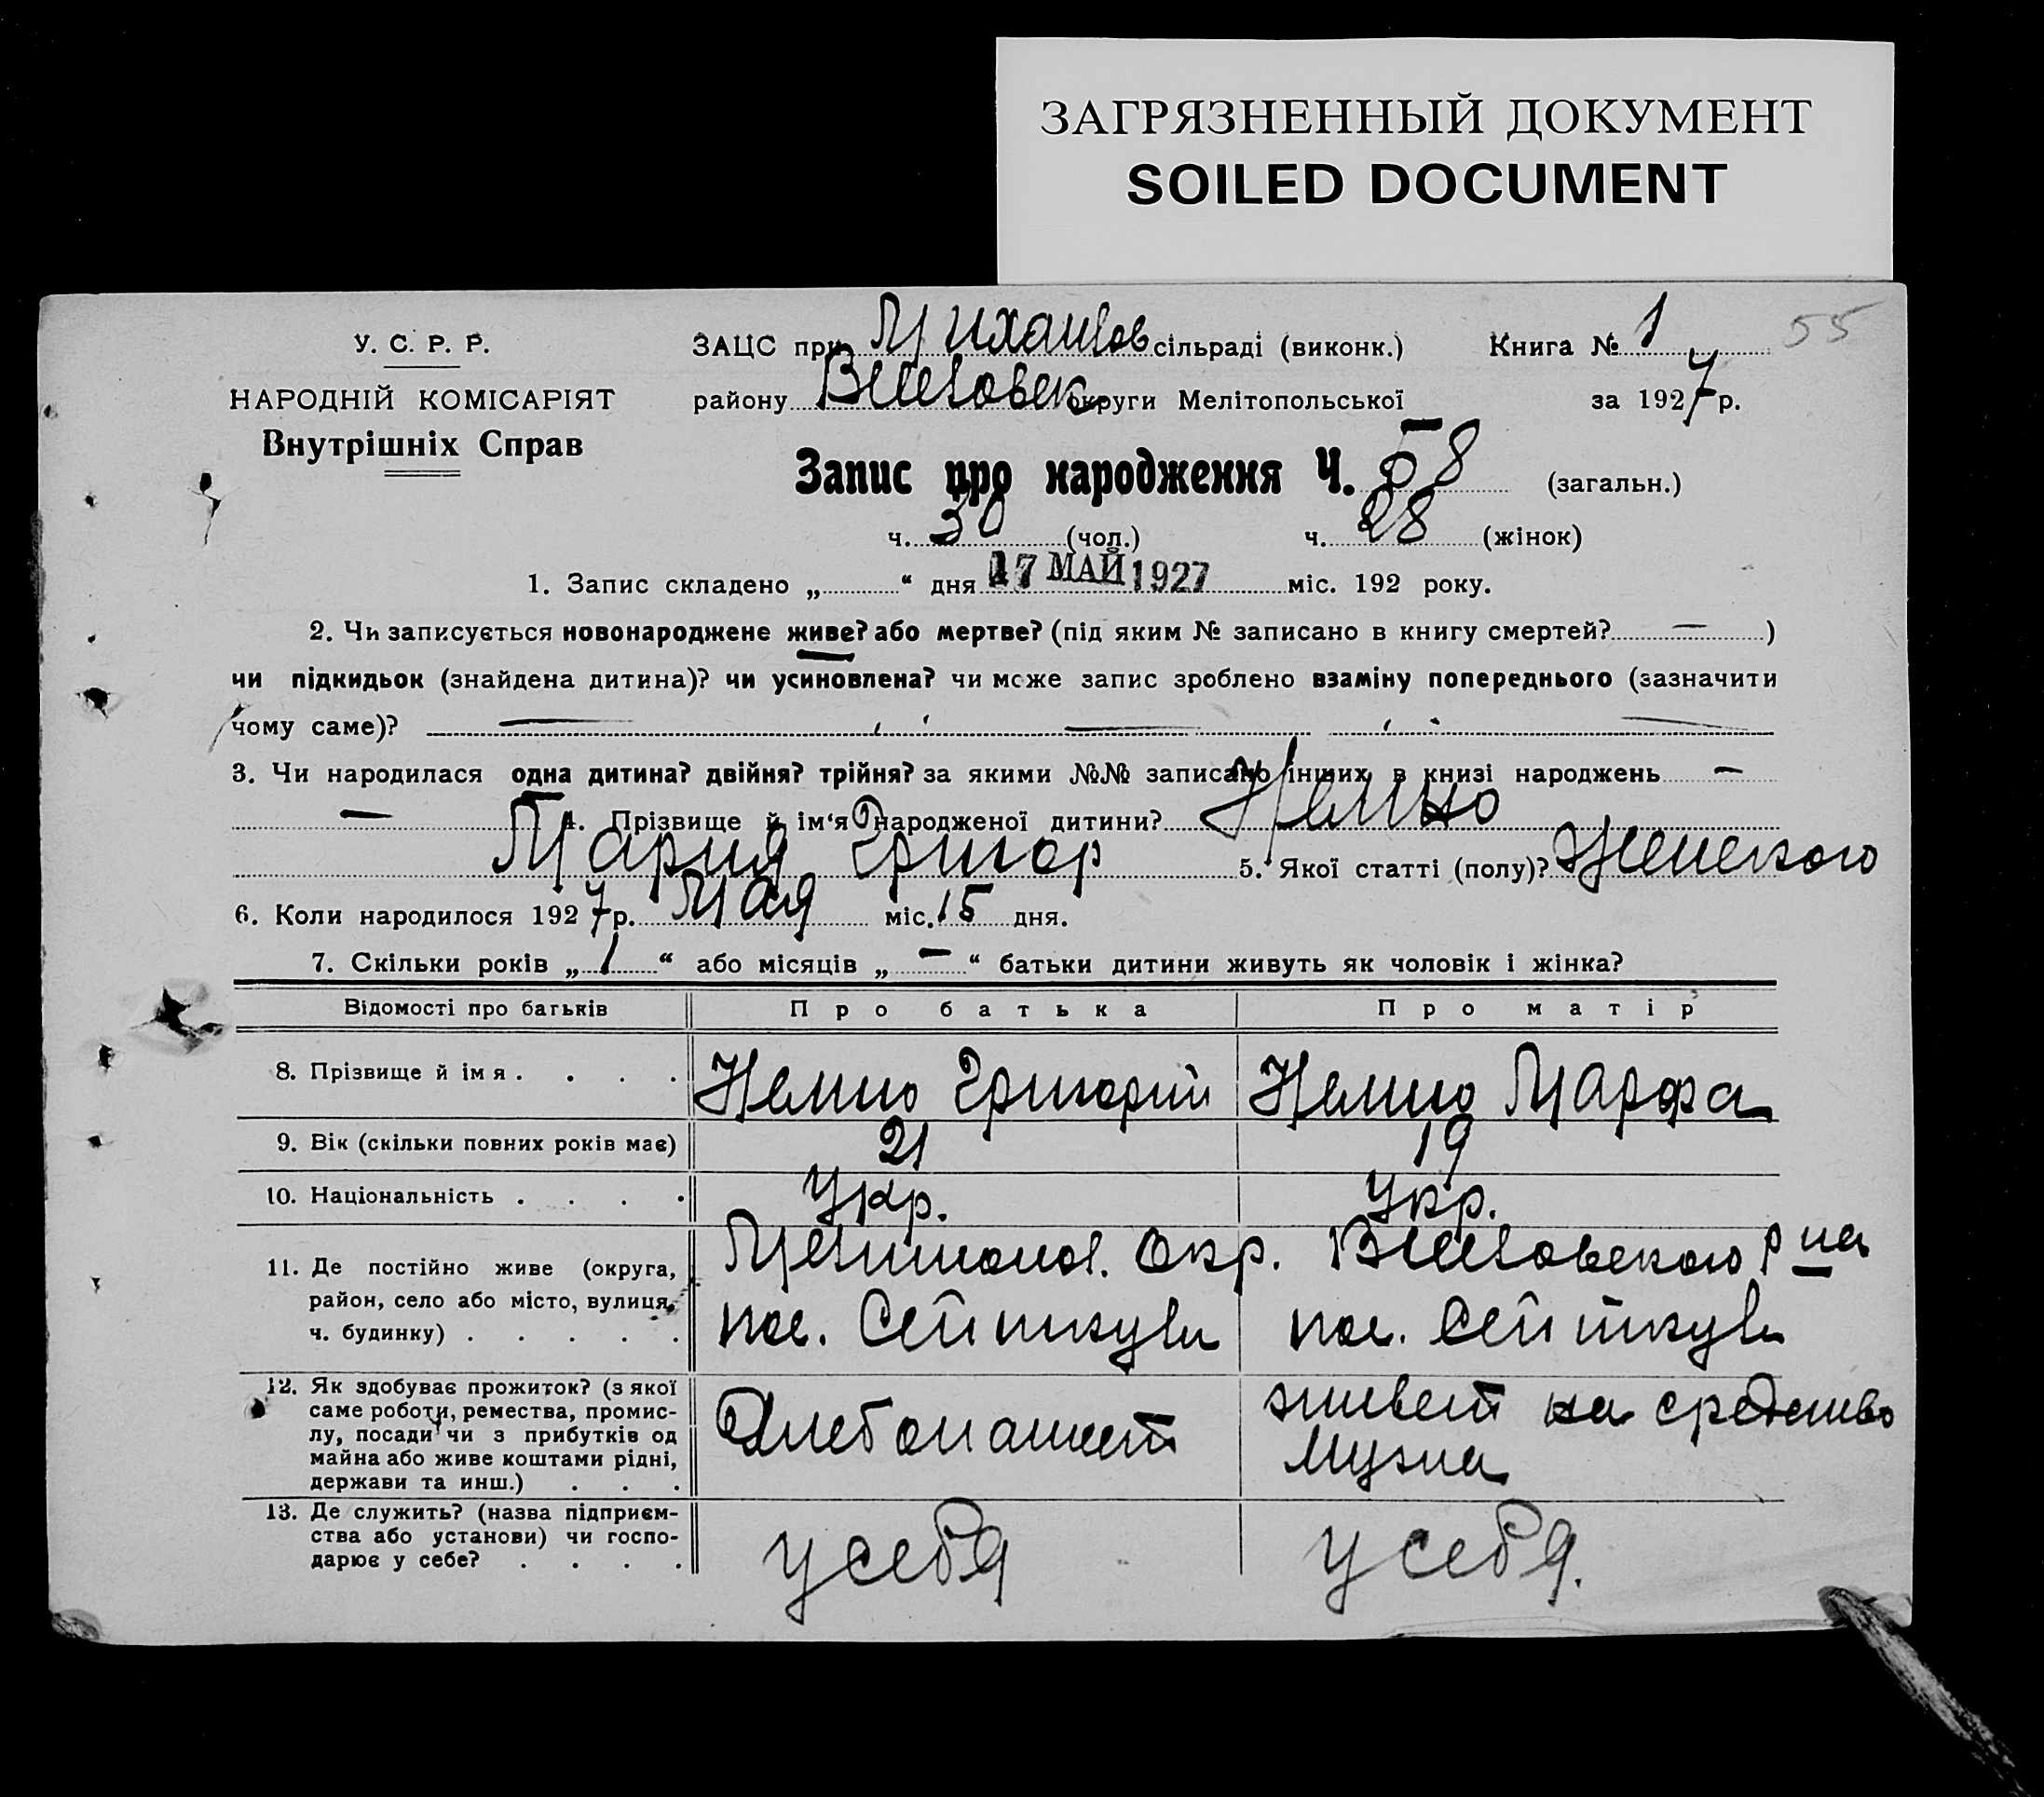 ЗАГРЯЗНЕННЫЙ ДОКУМЕНТ
SOILED DOCUMENT
У. С. Р. Р.
НАРОДНІЙ КОМІСАРІЯТ
Внутрішніх Справ
ЗАЦС при Михайлов сільраді (виконк.) Книга № 1 55
району округи Мелітопольської за 1927 р.
Запис про народження Ч. 58 (загальн.)
ч. 30 (чол.) ч. 28 (жінок)
1. Запис складено „ “ дня 17 МАЙ 1927 міс. 192 року.
2. Чи записується новонароджене живе? або мертве? (під яким № записано в книгу смертей? — )
чи підкидьок (знайдена дитина)? чи усиновлена? чи може запис зроблено взаміну попереднього (зазначити
чому саме)? — — —
3. Чи народилася одна дитина? двійня? трійня? за якими №№ записано інших в книзі народжень —
— 4. Прізвище й ім‘я народженої дитини?
Мария Григор 5. Якої статті (полу)? Женского
6. Коли народилося 1927 р. Мая міс. 15 дня.
7. Скільки років „ 1 “ або місяців „ — “ батьки дитини живуть як чоловік і жінка?
Відомості про батьків Про батька Про матір
8. Прізвище й імя . . . . Григорий Марфа
9. Вік (скільки повних років має) 21 19
10. Національність . . . . Укр. Укр.
11. Де постійно живе (округа, район, село або місто, вулиця, ч. будинку) . . . . . Мелитопол. Окр. р на
пос. пос.
12. Як здобуває прожиток? (з якої саме роботи, ремества, промислу, посади чи з прибутків од майна або живе коштами рідні, держави та инш.) . . . Хлебопашест живет на средство
мужа
13. Де служить? (назва підприємства або установи) чи господарює у себе? . . . . у себя у себя.